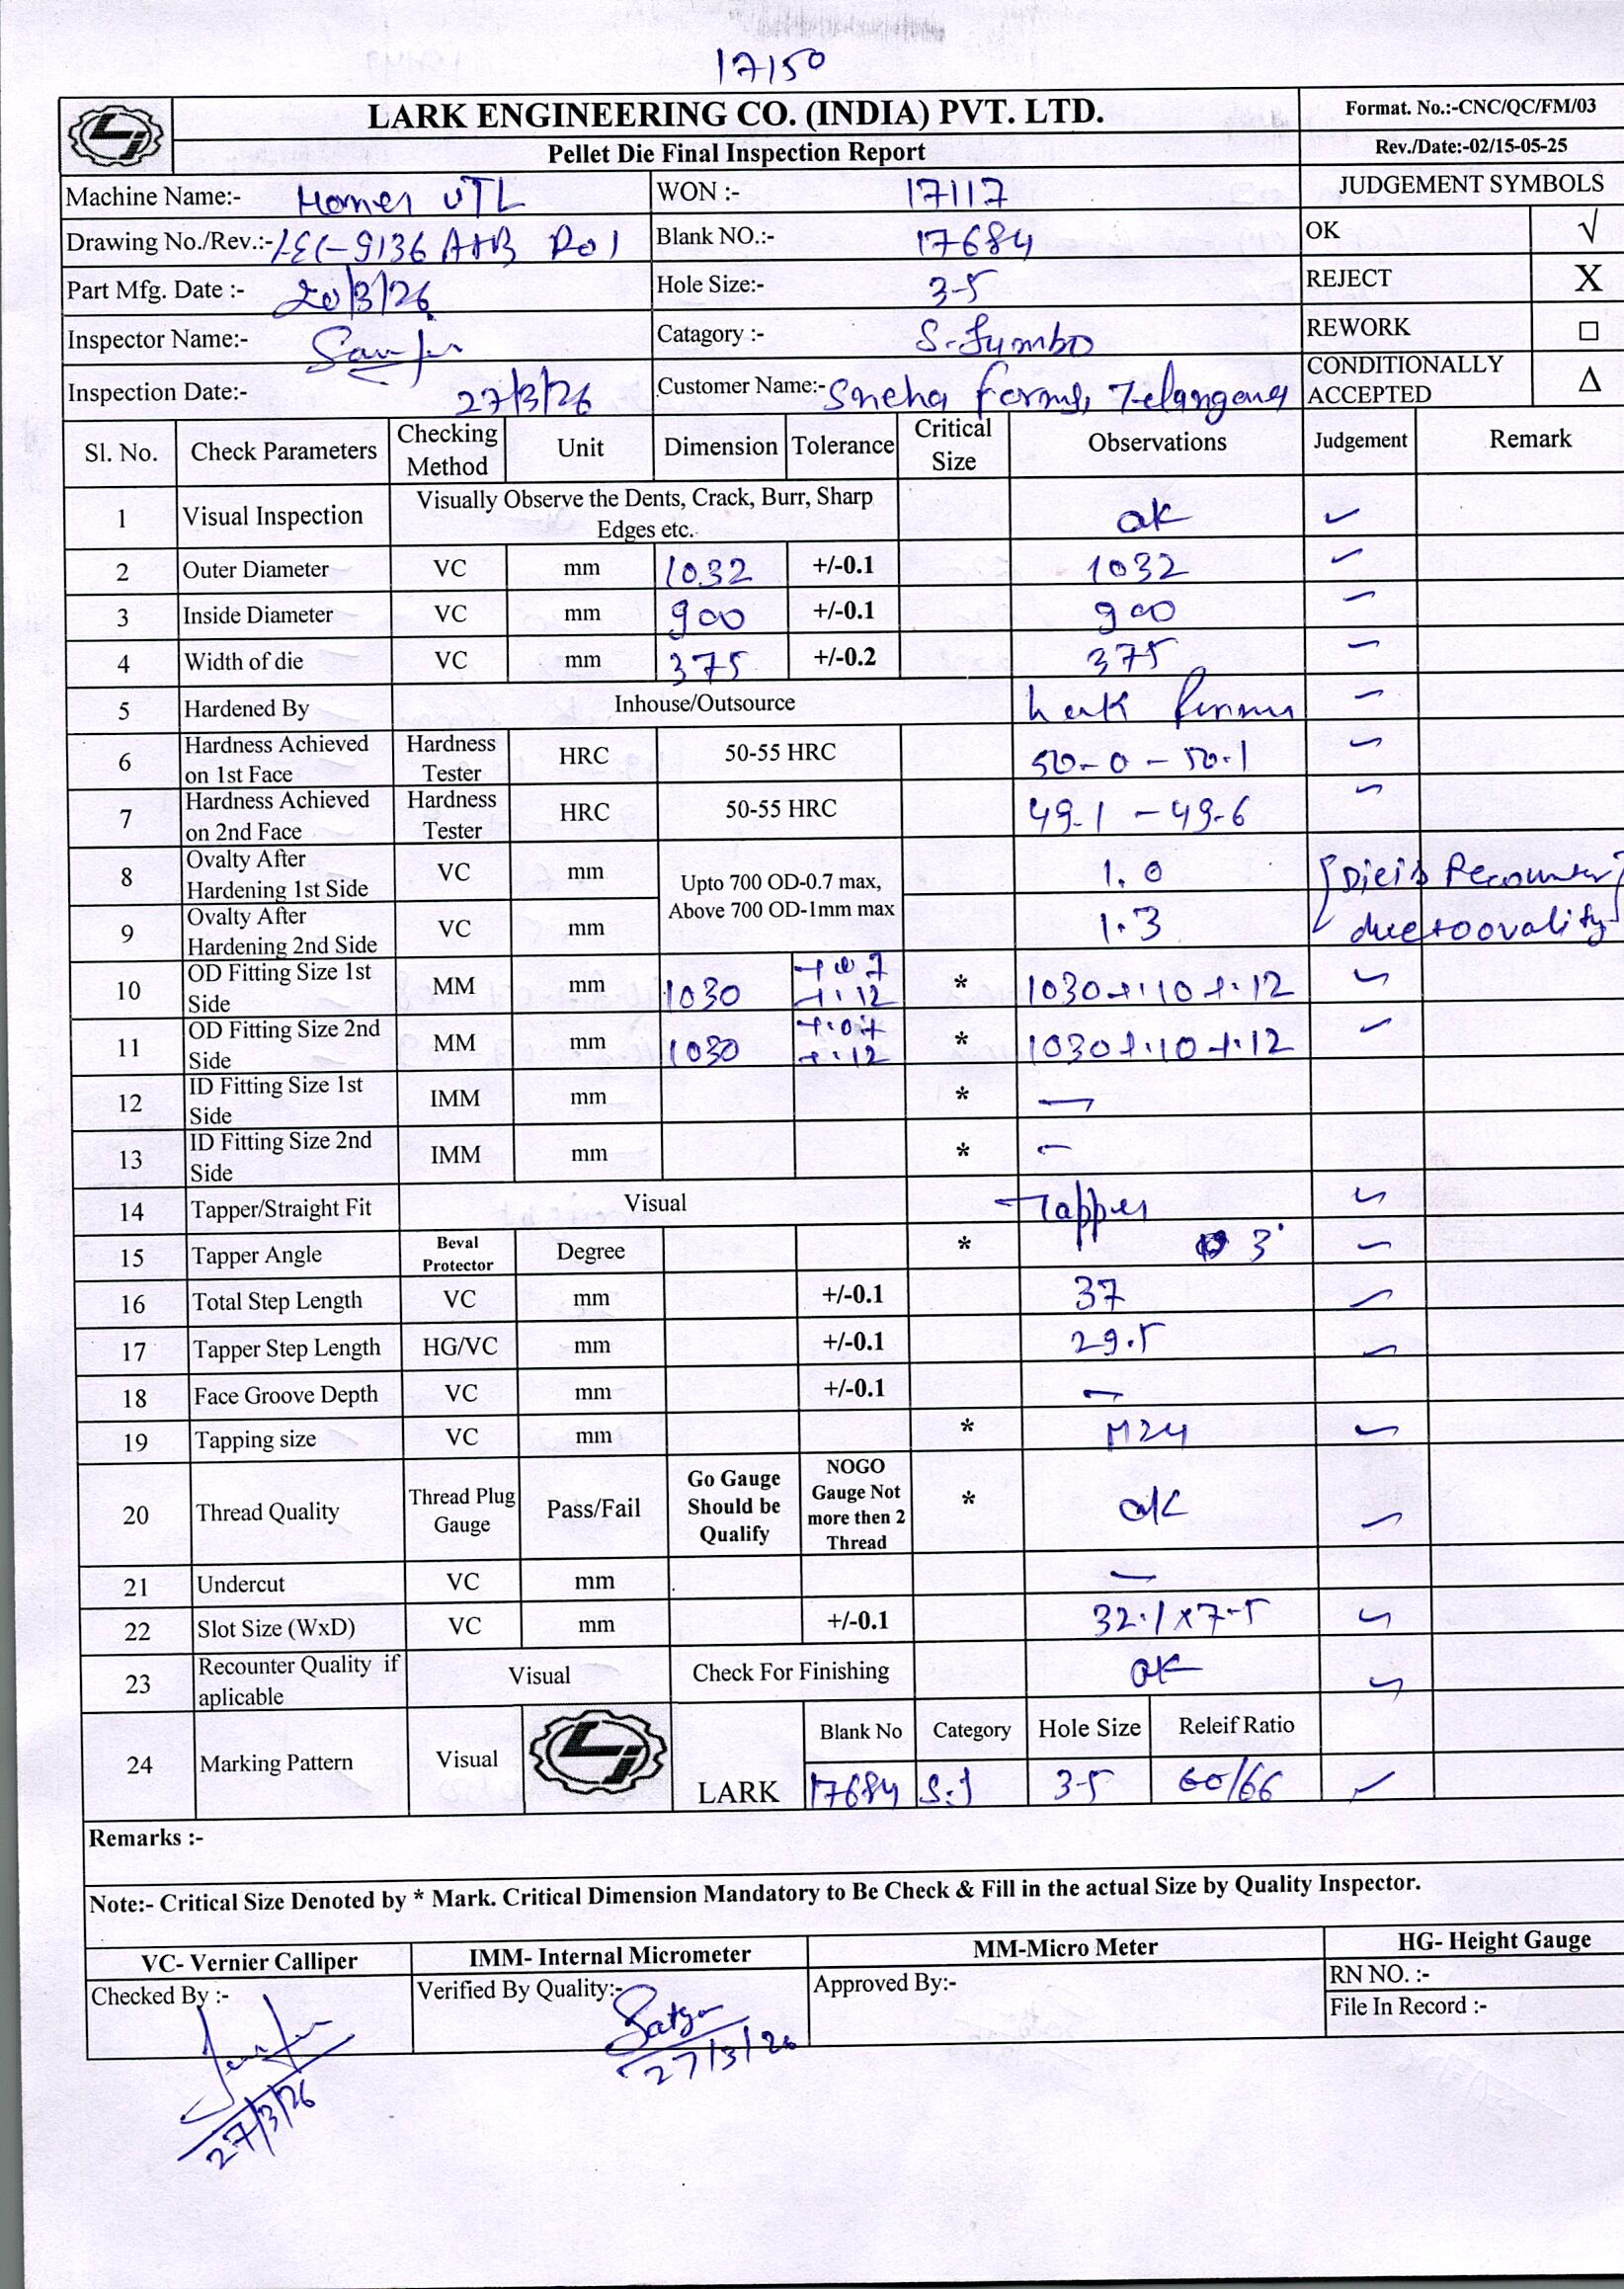 17150
LARK ENGINEERING CO. (INDIA) PVT. LTD.
Pellet Die Final Inspection Report
Format. No.:-CNC/QC/FM/03
Rev./Date:-02/15-05-25
Machine Name:- VTL WON :- 17117 JUDGEMENT SYMBOLS
Drawing No./Rev.:- LEC-9136 A+B R01 Blank NO.:- 17684 OK √
Part Mfg. Date :- 20/3/26 Hole Size:- 3-5 REJECT X
Inspector Name:- Catagory :- S.Jumbo REWORK □
Inspection Date:- 27/3/26 Customer Name:- Sneha Farms, Telangana CONDITIONALLY ACCEPTED Δ
Sl. No. Check Parameters Checking Method Unit Dimension Tolerance Critical Size Observations Judgement Remark
1 Visual Inspection Visually Observe the Dents, Crack, Burr, Sharp Edges etc. ok ✓
2 Outer Diameter VC mm 1032 +/-0.1 1032 ✓
3 Inside Diameter VC mm 900 +/-0.1 900 ✓
4 Width of die VC mm 375 +/-0.2 375 ✓
5 Hardened By Inhouse/Outsource ✓
6 Hardness Achieved on 1st Face Hardness Tester HRC 50-55 HRC 50-0 - 50.1 ✓
7 Hardness Achieved on 2nd Face Hardness Tester HRC 50-55 HRC 49.1 - 49-6 ✓
8 Ovalty After Hardening 1st Side VC mm Upto 700 OD-0.7 max, Above 700 OD-1mm max 1.0 [Die is Recounter]
9 Ovalty After Hardening 2nd Side VC mm 1.3 due to ovality
10 OD Fitting Size 1st Side MM mm 1030 +.07 +.12 * 1030+.10+.12 ✓
11 OD Fitting Size 2nd Side MM mm 1030 +.07 +.12 * 1030+.10+.12 ✓
12 ID Fitting Size 1st Side IMM mm * —
13 ID Fitting Size 2nd Side IMM mm * —
14 Tapper/Straight Fit Visual Tapper ✓
15 Tapper Angle Beval Protector Degree * 3° ✓
16 Total Step Length VC mm +/-0.1 37 ✓
17 Tapper Step Length HG/VC mm +/-0.1 29.5 ✓
18 Face Groove Depth VC mm +/-0.1 —
19 Tapping size VC mm * M24 ✓
20 Thread Quality Thread Plug Gauge Pass/Fail Go Gauge Should be Qualify NOGO Gauge Not more then 2 Thread * ok ✓
21 Undercut VC mm —
22 Slot Size (WxD) VC mm +/-0.1 32.1x7-5 ✓
23 Recounter Quality if aplicable Visual Check For Finishing ok ✓
24 Marking Pattern Visual LARK Blank No Category Hole Size Releif Ratio
17684 S.J 3-5 60/66 ✓
Remarks :-
Note:- Critical Size Denoted by * Mark. Critical Dimension Mandatory to Be Check & Fill in the actual Size by Quality Inspector.
VC- Vernier Calliper IMM- Internal Micrometer MM-Micro Meter HG- Height Gauge
Checked By :- Verified By Quality:- Satya Approved By:- RN NO. :-
File In Record :-
27/3/26 27/3/26